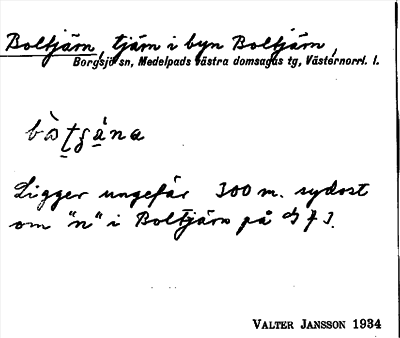 Boltjärn, tjärn i byn Boltjärn,
Borgsjö sn, Medelpads västra domsagas tg, Västernorrl. l.
Ligger ungefär 300 m. sydost
om "n" i Boltjärn på
VALTER JANSSON 1934